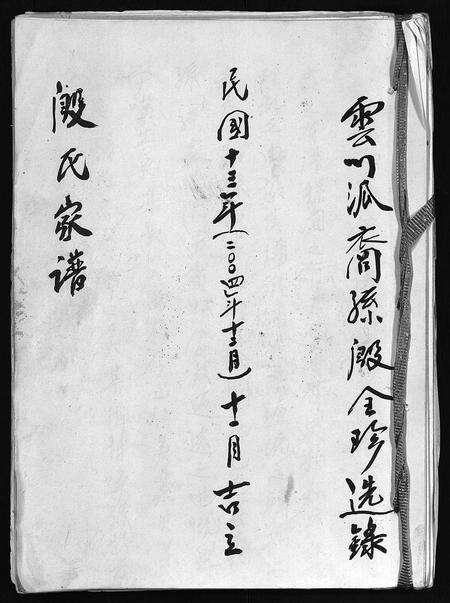 雲川派裔孫殷全珍选錄
民國十三年(二〇〇四年十二月)十一月吉立
殷氏家谱